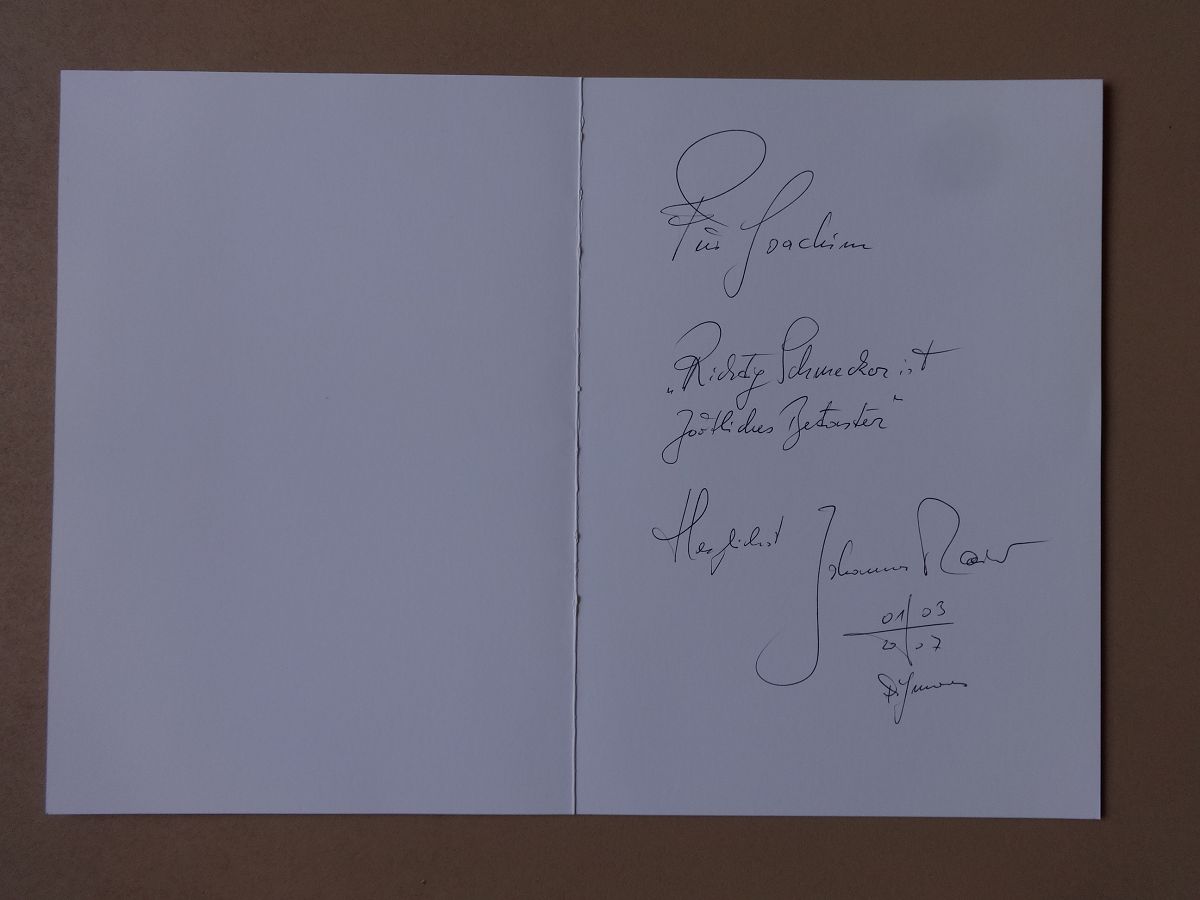 Für Joachim
„Richtig Schmecken ist
zärtliches Betasten"
Herzlichst Johannes
01 03
20 07